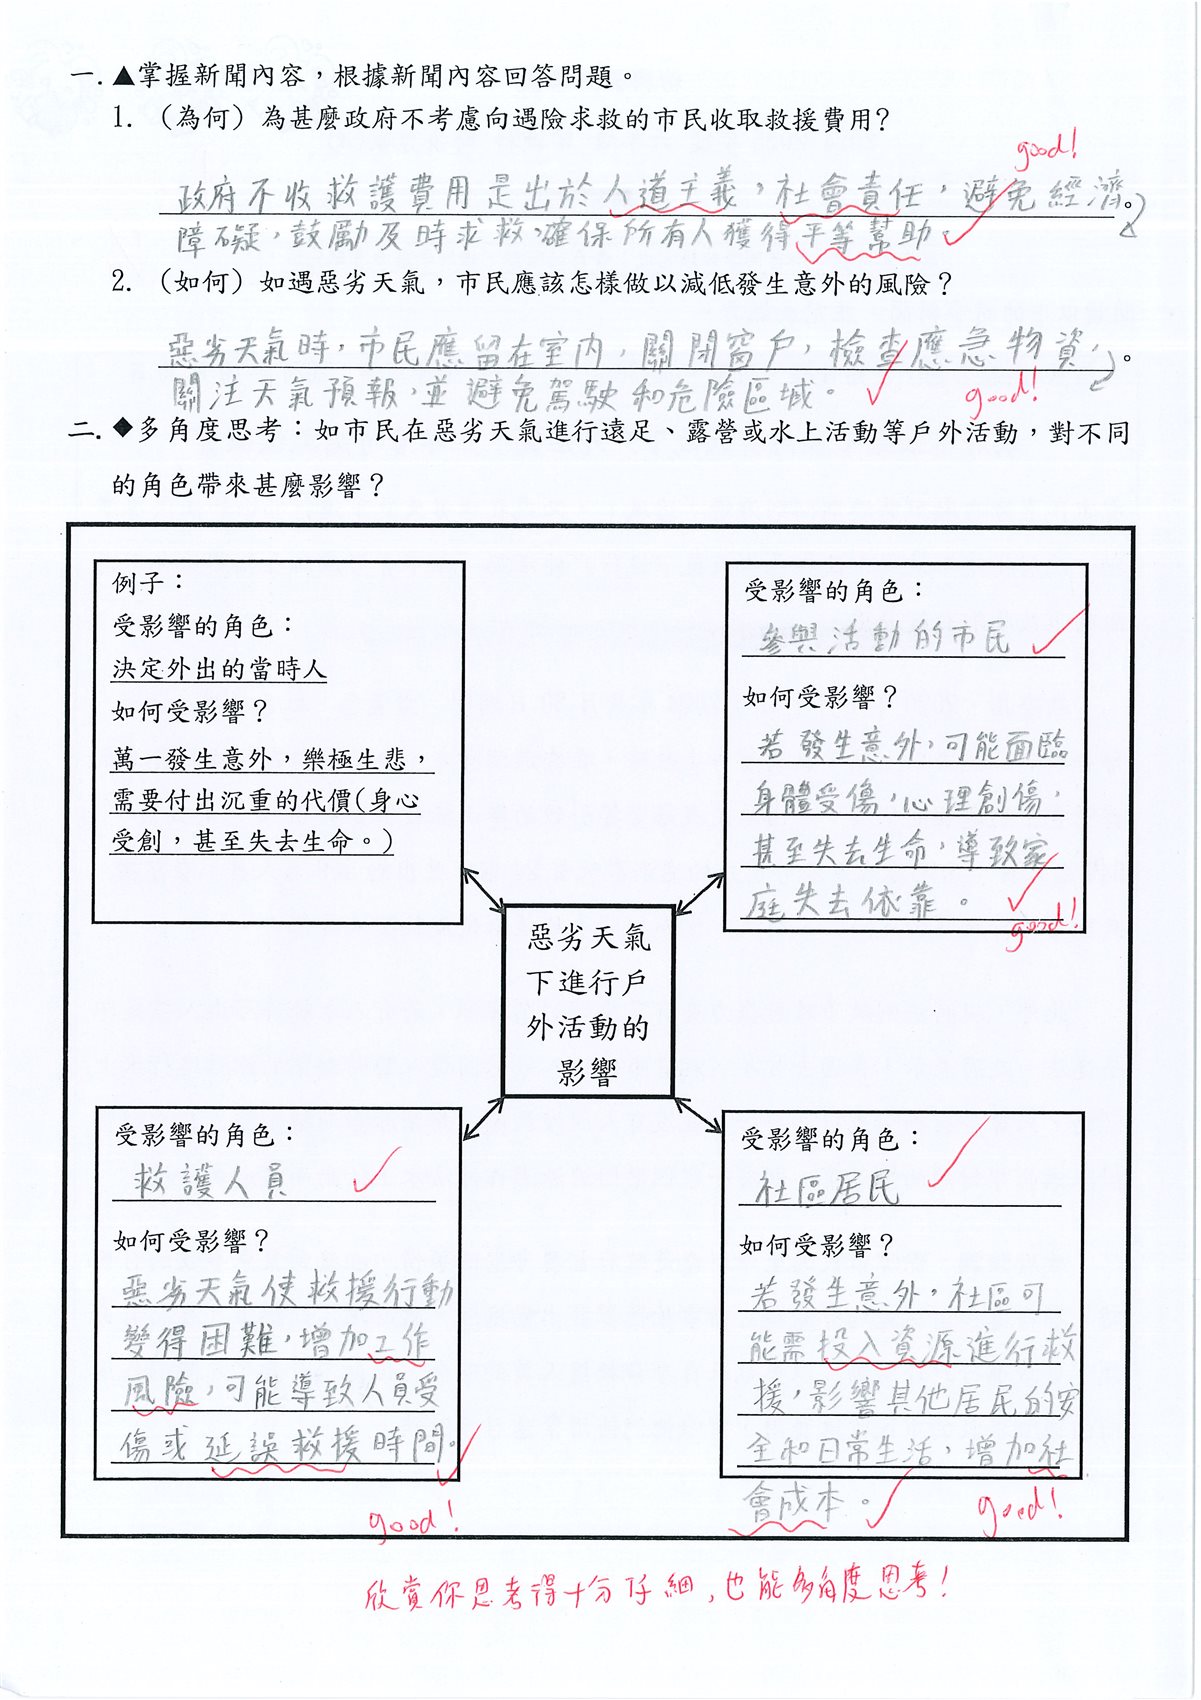 一. ▲掌握新聞內容，根據新聞內容回答問題。
1. （為何）為甚麼政府不考慮向遇險求救的市民收取救援費用？
good!
政府不收救護費用是出於人道主義，社會責任，避免經濟。
障礙，鼓勵及時求救，確保所有人獲得平等幫助。
2. （如何）如遇惡劣天氣，市民應該怎樣做以減低發生意外的風險？
惡劣天氣時，市民應留在室內，關閉窗戶，檢查應急物資，。
關注天氣預報，並避免駕駛和危險區域。
good!
二. ◆多角度思考：如市民在惡劣天氣進行遠足、露營或水上活動等戶外活動，對不同
的角色帶來甚麼影響？
例子：
受影響的角色：
決定外出的當時人
如何受影響？
萬一發生意外，樂極生悲，
需要付出沉重的代價(身心
受創，甚至失去生命。)
受影響的角色：
參與活動的市民
如何受影響？
若發生意外，可能面臨
身體受傷，心理創傷，
甚至失去生命，導致家
庭失去依靠。
good!
惡劣天氣
下進行戶
外活動的
影響
受影響的角色：
救護人員
如何受影響？
惡劣天氣使救援行動
變得困難，增加工作
風險，可能導致人員受
傷或延誤救援時間。
good!
受影響的角色：
社區居民
如何受影響？
若發生意外，社區可
能需投入資源進行救
援，影響其他居民的安
全和日常生活，增加社
會成本。
good!
欣賞你思考得十分仔細，也能多角度思考！